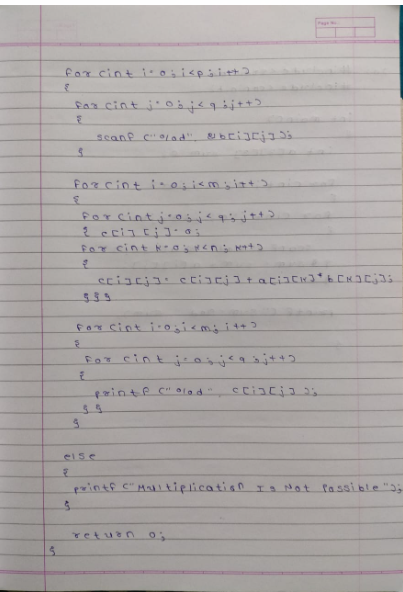 Page No.:
for (int i=0; i<p; i++)
{
for (int j=0; j<q; j++)
{
scanf ("%d", &b[i][j]);
}
for (int i=0; i<m; i++)
{
for (int j=0; j<q; j++)
{ c[i][j]=0;
for (int k=0; k<n; k++)
{
c[i][j]= c[i][j] + a[i][k]*b[k][j];
}}}
for (int i=0; i<m; i++)
{
for (int j=0; j<q; j++)
{
printf ("%d", c[i][j]);
}}
}
else
{
printf ("Multiplication Is Not Possible");
}
return 0;
}